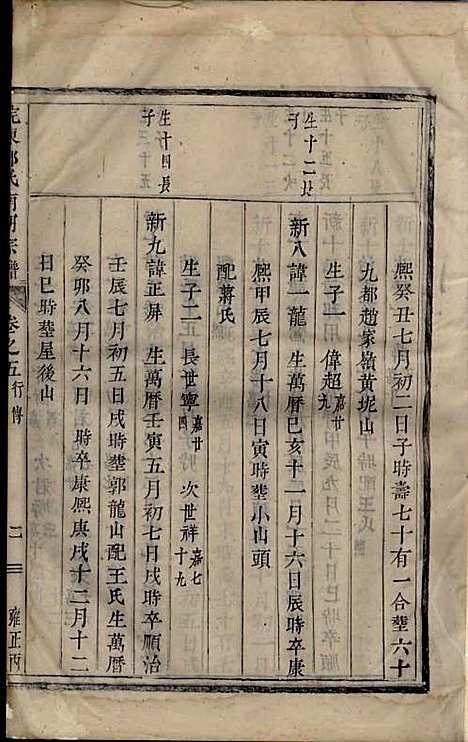 熙癸丑七月初二日子時壽七十有一合塟六十
九都趙家嶺黄坭山
生子一　偉超嘉廿九
新八諱一龍　生萬曆己亥十一月十六日辰時卒康
熙甲辰七月十八日寅時塟小山頭
配蔣氏
生子二　長世寧嘉廿四　次世祥嘉七十九
新九諱正屏　生萬曆壬寅五月初七日戌時卒順治
壬辰七月初五日戌時塟郭龍山配王氏生萬曆
癸卯八月十六日　時卒康熙庚戌十二月十二
日巳時塟屋後山
生十二長
子
生十四長
子
氏宗譜
卷之五行傳
二
雍正丙